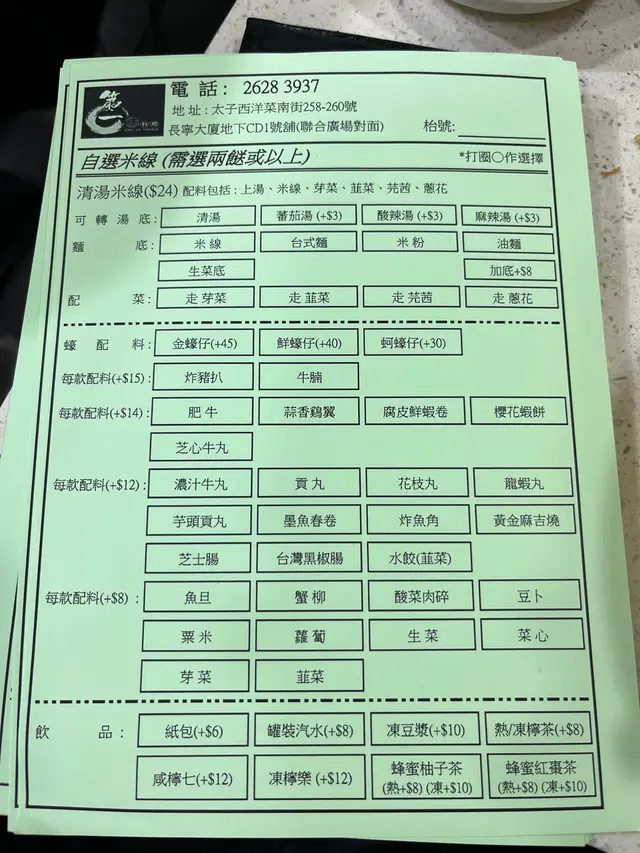 第一
電話: 2628 3937
地址:太子西洋菜南街258-260號
長寧大廈地下CD1號舖(聯合廣場對面)
枱號:
自選米線 (需選兩餸或以上)
*打圈○作選擇
清湯米線($24) 配料包括:上湯、米線、芽菜、韮菜、芫茜、蔥花
可轉湯底: 清湯 蕃茄湯 (+$3) 酸辣湯 (+$3) 麻辣湯 (+$3)
麵底: 米線 台式麵 米粉 油麵
生菜底 加底+$8
配菜: 走 芽菜 走 韮菜 走 芫茜 走 蔥花
蠔配料: 金蠔仔(+45) 鮮蠔仔(+40) 蚵蠔仔(+30)
每款配料(+$15): 炸豬扒 牛腩
每款配料(+$14): 肥牛 蒜香鷄翼 腐皮鮮蝦卷 櫻花蝦餅
芝心牛丸
每款配料(+$12): 濃汁牛丸 貢丸 花枝丸 龍蝦丸
芋頭貢丸 墨魚春卷 炸魚角 黃金麻吉燒
芝士腸 台灣黑椒腸 水餃(韮菜)
每款配料(+$8) : 魚旦 蟹柳 酸菜肉碎 豆卜
粟米 蘿蔔 生菜 菜心
芽菜 韮菜
飲品: 紙包(+$6) 罐裝汽水(+$8) 凍豆漿(+$10) 熱/凍檸茶(+$8)
咸檸七(+$12) 凍檸樂 (+$12) 蜂蜜柚子茶 蜂蜜紅棗茶
(熱+$8) (凍+$10) (熱+$8) (凍+$10)